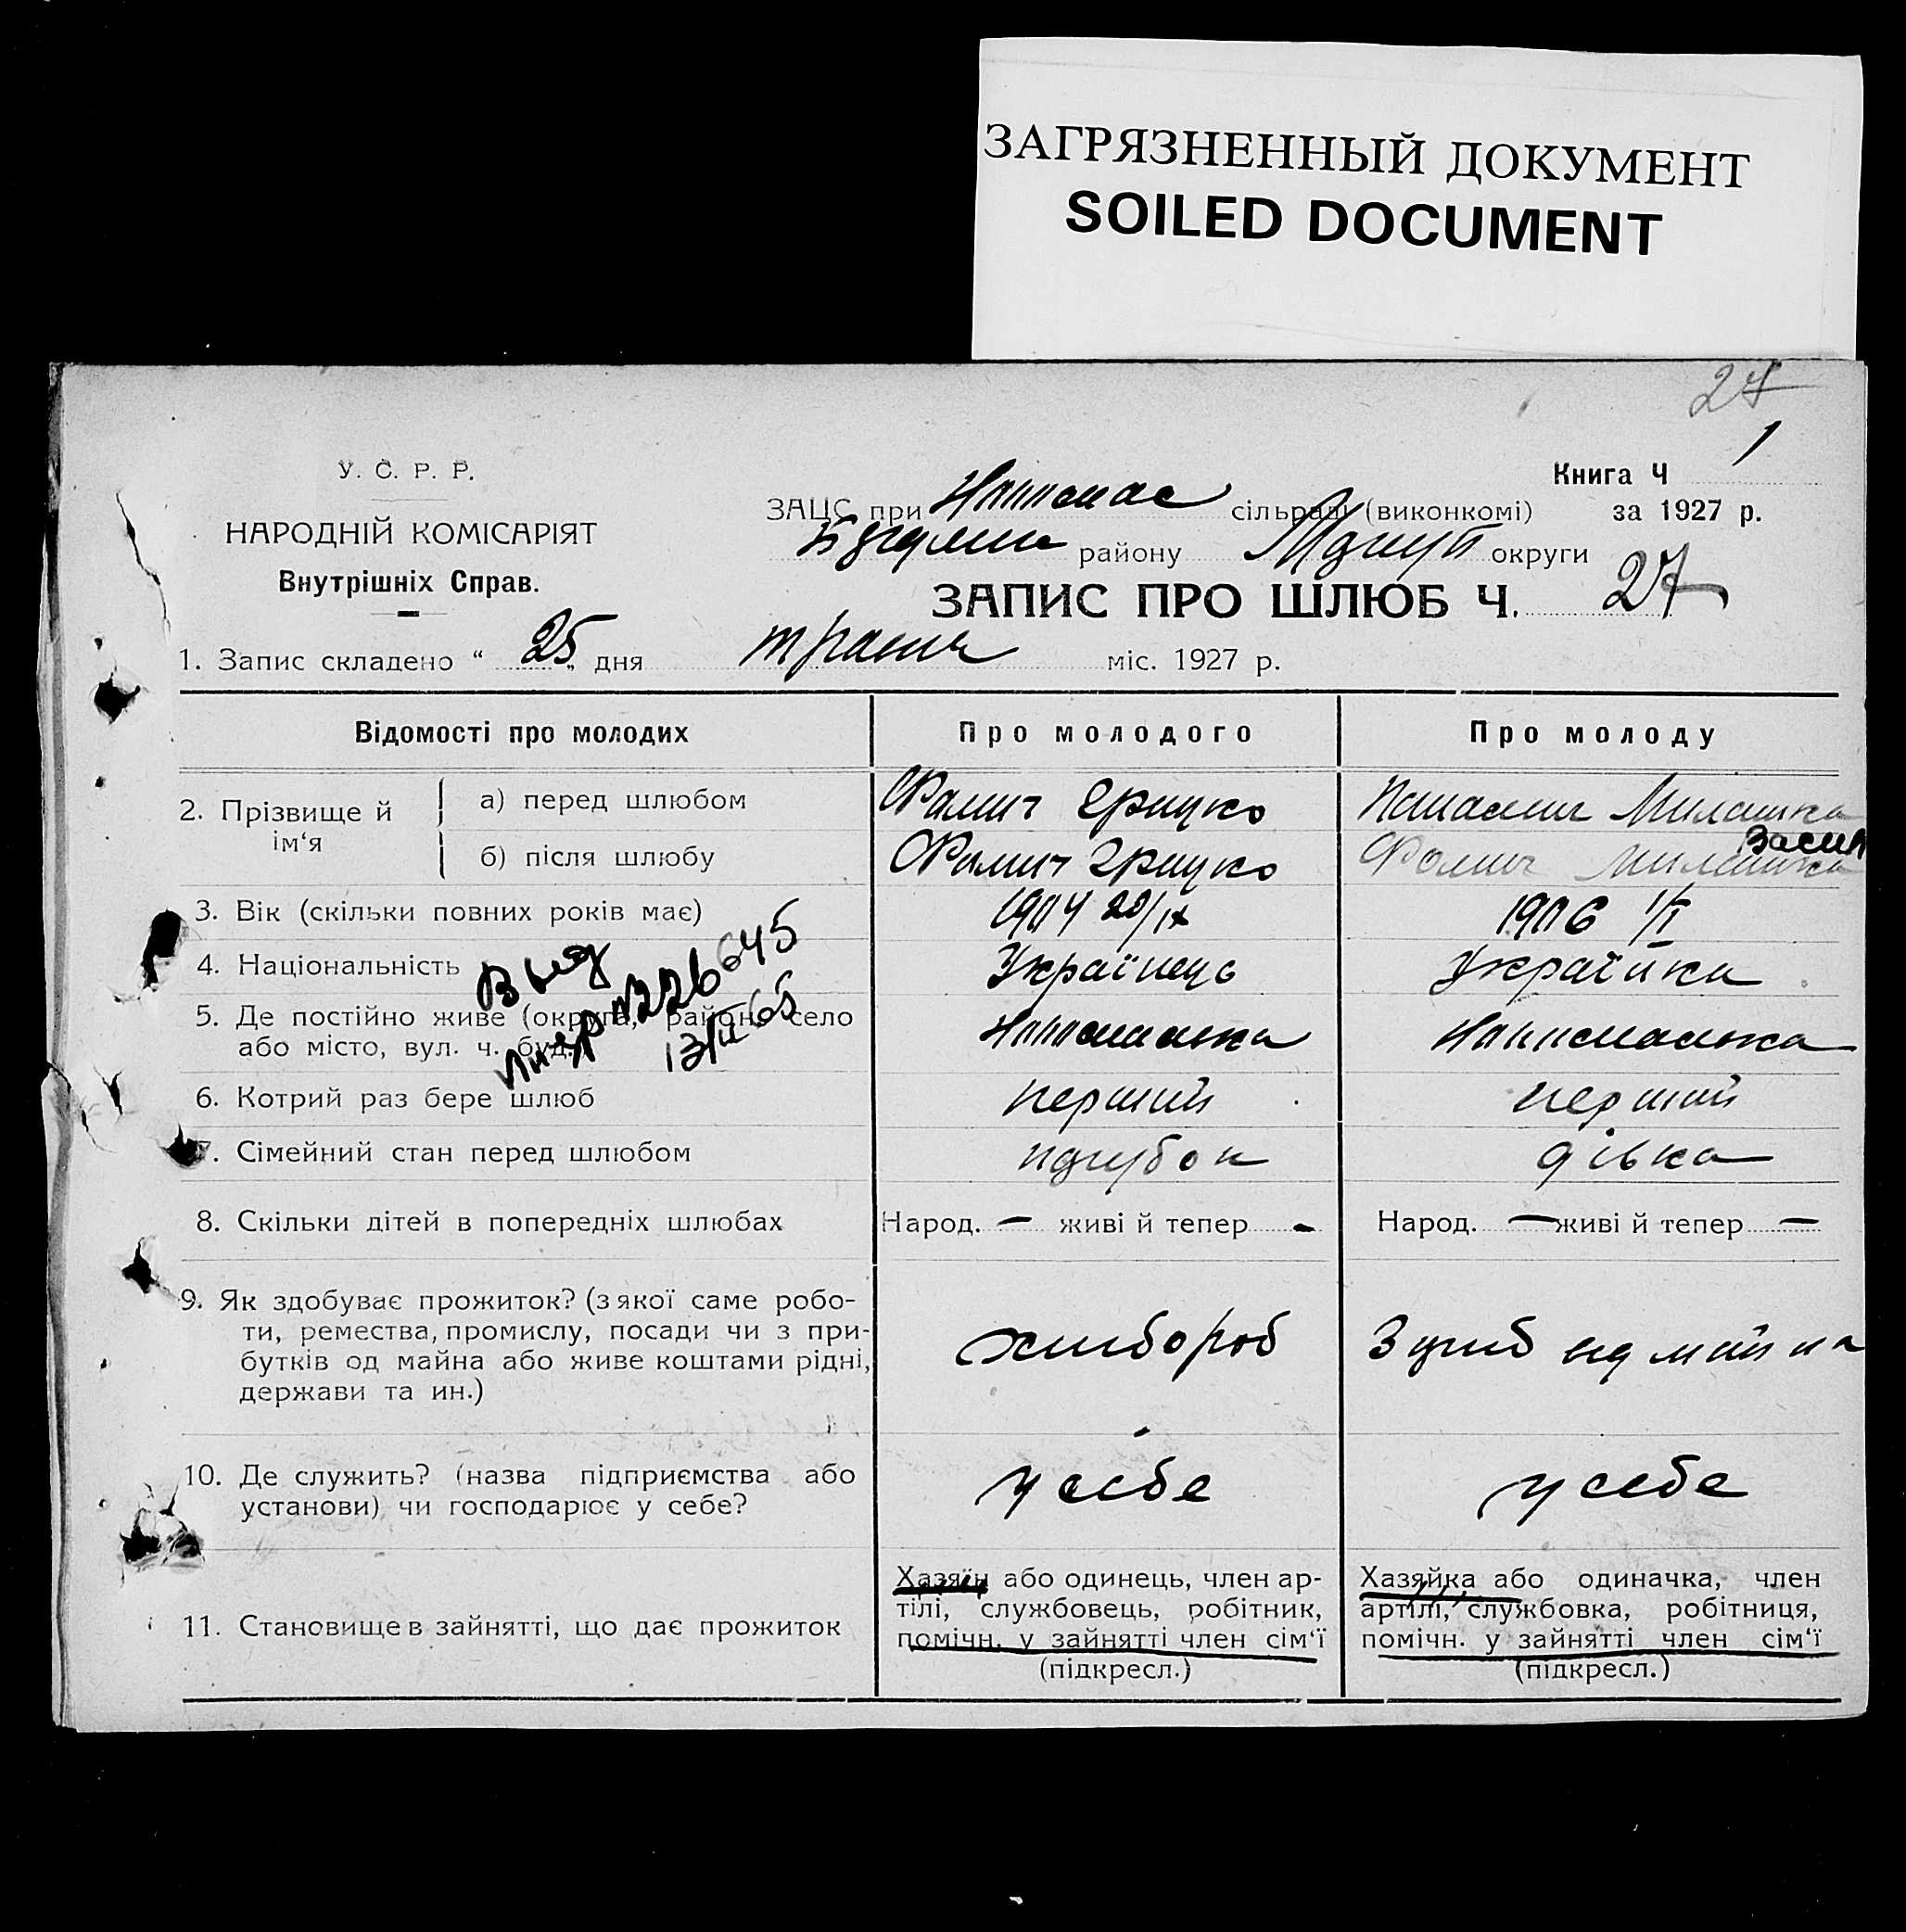 ЗАГРЯЗНЕННЫЙ ДОКУМЕНТ
SOILED DOCUMENT
27
У. С. Р. Р.
НАРОДНІЙ КОМІСАРІЯТ
Внутрішніх Справ.
Книга Ч 1
ЗАЦС при сільраді (виконкомі) за 1927 р.
району округи
ЗАПИС ПРО ШЛЮБ Ч. 27
1. Запис складено “ 25 „ дня травня міс. 1927 р.
Відомості про молодих
Про молодого
Про молоду
2. Прізвище й ім‘я
а) перед шлюбом
Фомич Грицко
Милашка
б) після шлюбу
Фомич Грицко
Фомич Милашка
Васил
3. Вік (скільки повних років має)
1904 20/IX
1906 1/I
4. Національність
Українець
Українка
5. Де постійно живе (округа, район, село
або місто, вул. ч. буд.
226645
13/II 65
6. Котрий раз бере шлюб
перший
перший
7. Сімейний стан перед шлюбом
парубок
дівка
8. Скільки дітей в попередніх шлюбах
Народ. — живі й тепер —
Народ. — живі й тепер —
9. Як здобуває прожиток? (з якої саме робо-
ти, ремества, промислу, посади чи з при-
бутків од майна або живе коштами рідні,
держави та ин.)
хлібороб
майна
10. Де служить? (назва підприємства або
установи) чи господарює у себе?
у себе
у себе
11. Становище в зайнятті, що дає прожиток
Хазяїн або одинець, член ар-
тілі, службовець, робітник,
помічн. у зайнятті член сім‘ї
(підкресл.)
Хазяйка або одиначка, член
артілі, службовка, робітниця,
помічн. у зайнятті член сім‘ї
(підкресл.)